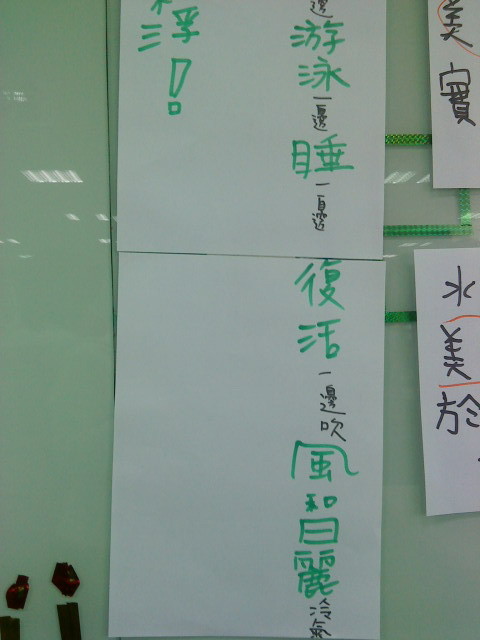 美實
水美於
邊游泳一邊睡一邊
復活一邊吹風和日麗冷氣
浮!